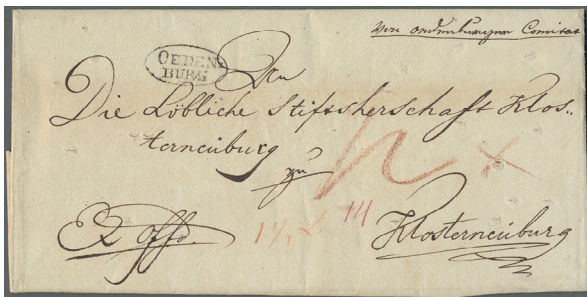 Von ödenburger Comitat
OEDEN
BURG
An
Die Löbliche Stiftsherschaft Klos..
terneuburg
zu
Ex offo.
14
Klosterneuburg